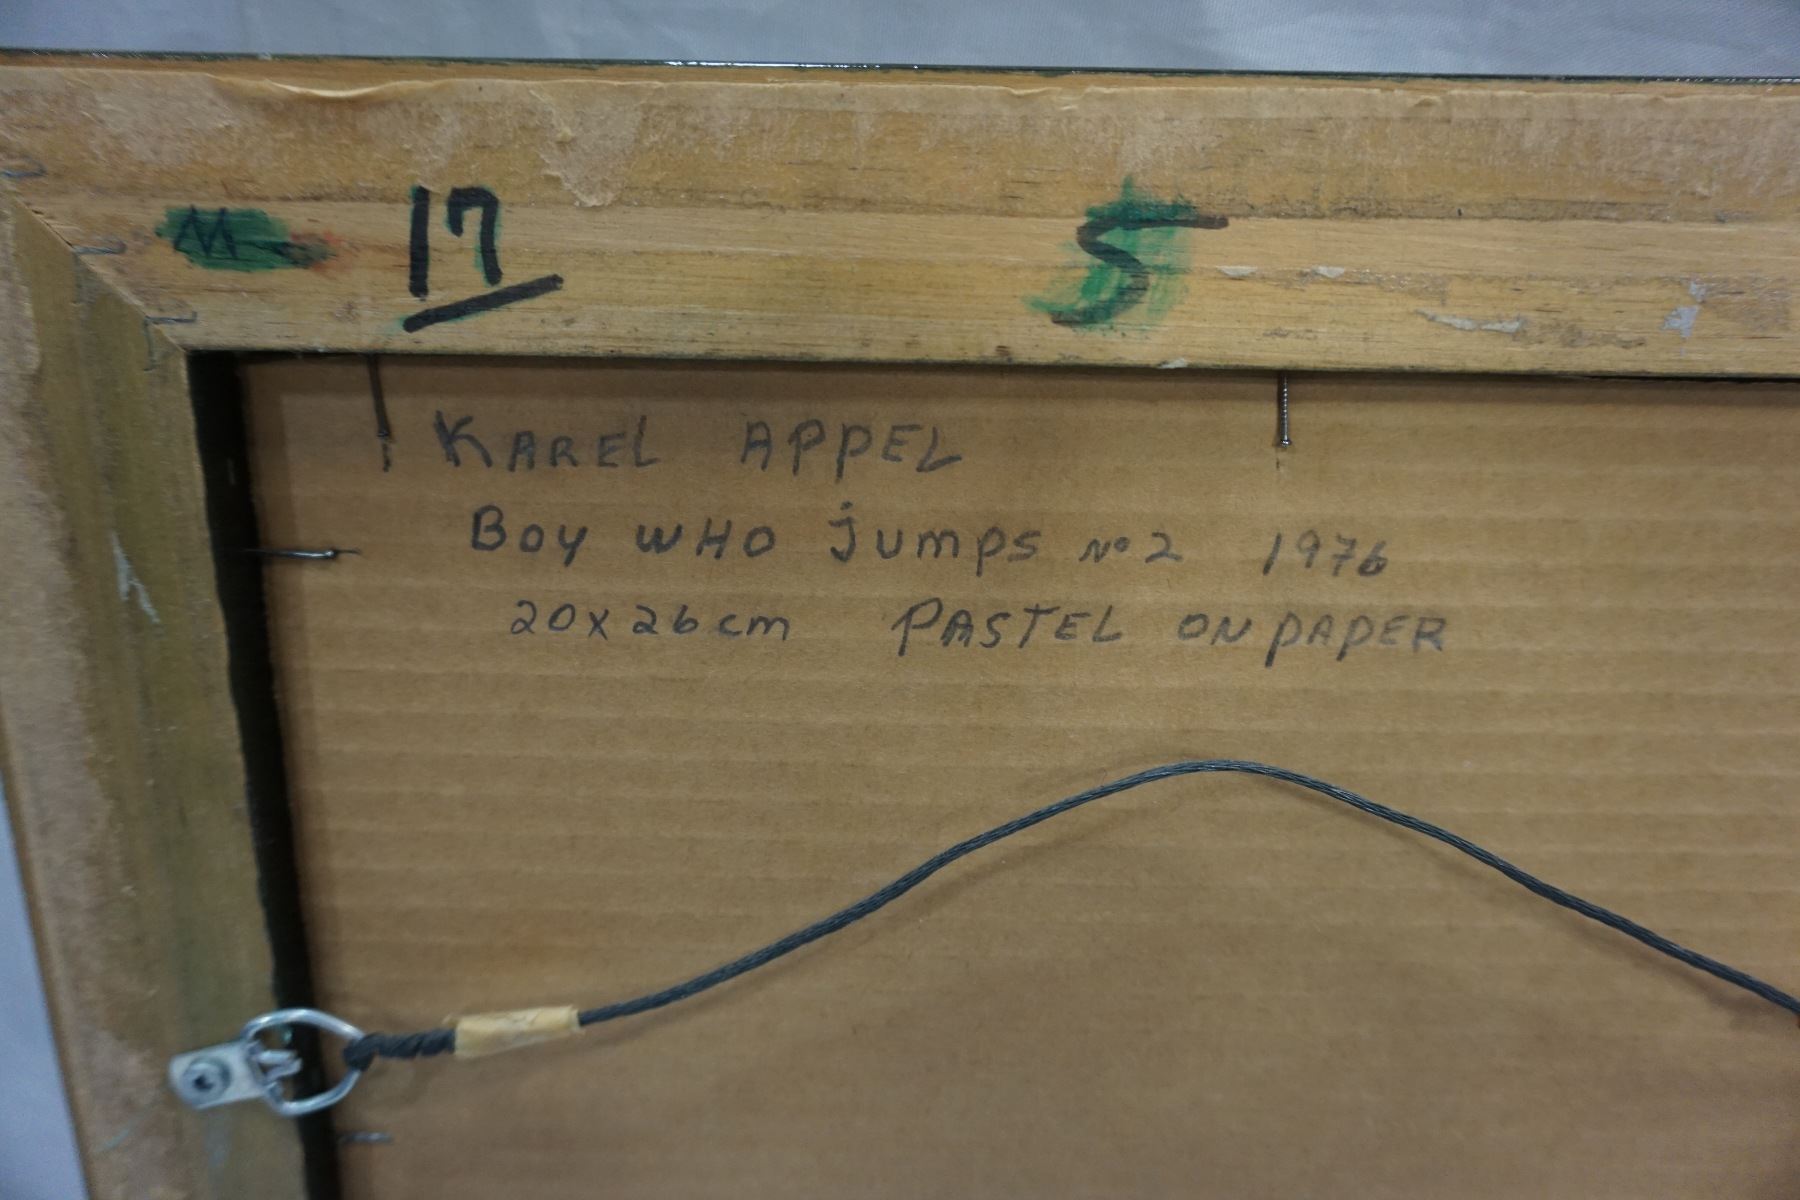 M 17 5
KAREL APPEL
Boy WHO jumps No 2 1976
20x26cm PASTEL ON PAPER